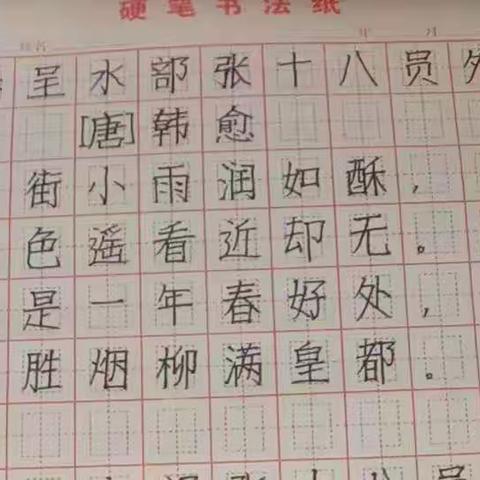 硬笔书法纸
呈水部张十八员外
[唐]韩愈
街小雨润如酥，
色遥看近却无。
是一年春好处，
胜烟柳满皇都。